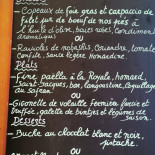 Copeaux de foie gras et carpaccio de
filet de bœuf de nos prés à
l'huile d'olive, baies roses, Condiment
OU
Raviolis de homard, Coriandre, tomate
Confite, Sauce légère Homardine
Plats
Fine paella à la Royale, homard,
Saint Jacques, bar, langoustine, coquillage
au safran
OU
Gigonette de volaille Fermière farcie et
galette de blettes et légumes de
saison.
Desserts
Buche au chocolat blanc et noir,
pistache.
OU